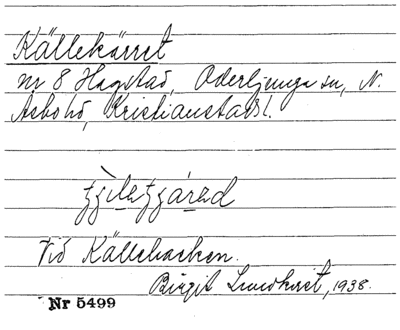 Källekärret
nr 8 Hagstad, Oderljunga sn, N.
Åsbo hd, Kristianstads l.
Vid Källebacken.
Birgit Lundkvist, 1938.
Nr 5499